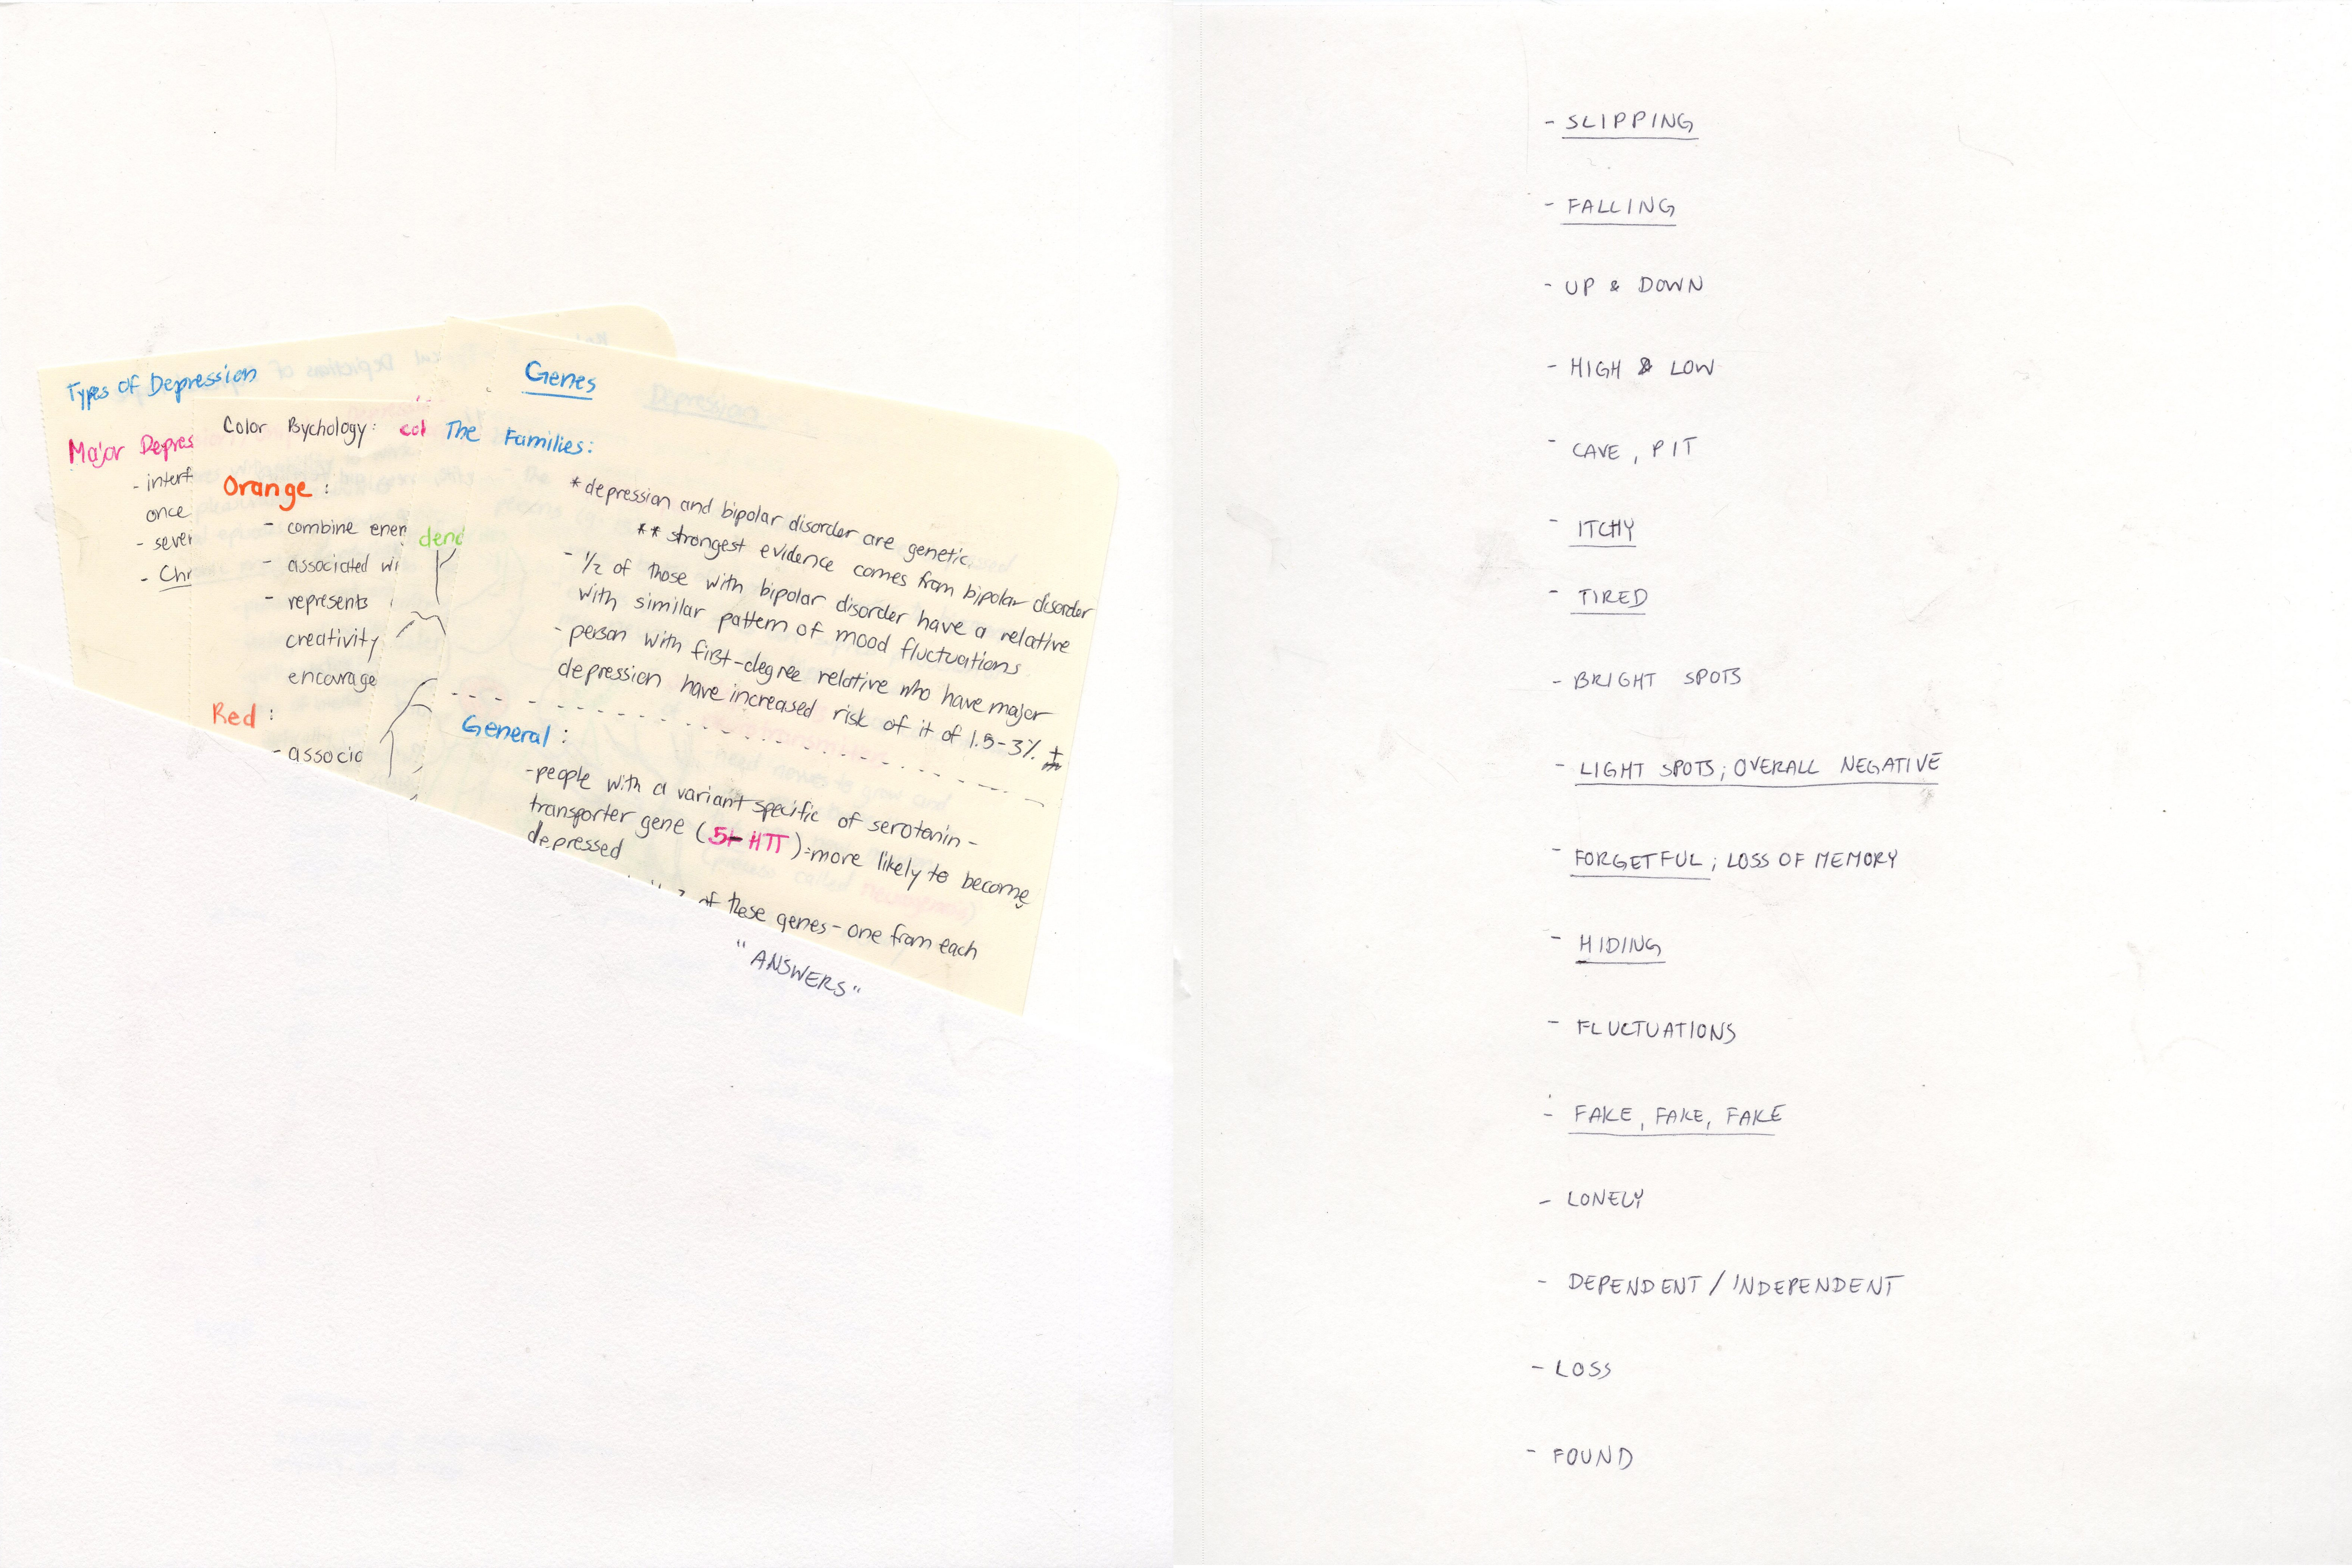 Types of Depression
Major Depres
- interf
once
- sever
- Chr
Color Psychology: col
Orange :
- combine ener
- associated wi
- represents
creativity
encourage
Red :
- associa
dend
Genes
The Families:
* depression and bipolar disorder are genetic
** strongest evidence comes from bipolar disorder
- 1/2 of those with bipolar disorder have a relative
with similar pattern of mood fluctuations
- person with first-degree relative who have major
depression have increased risk of it of 1.5-3%
General :
- people with a variant specific of serotonin-
transporter gene (5-HTT) = more likely to become
depressed
of these genes - one from each
"ANSWERS"
- SLIPPING
- FALLING
- UP & DOWN
- HIGH & LOW
- CAVE, PIT
- ITCHY
- TIRED
- BRIGHT SPOTS
- LIGHT SPOTS; OVERALL NEGATIVE
- FORGETFUL; LOSS OF MEMORY
- HIDING
- FLUCTUATIONS
- FAKE, FAKE, FAKE
- LONELY
- DEPENDENT / INDEPENDENT
- LOSS
- FOUND